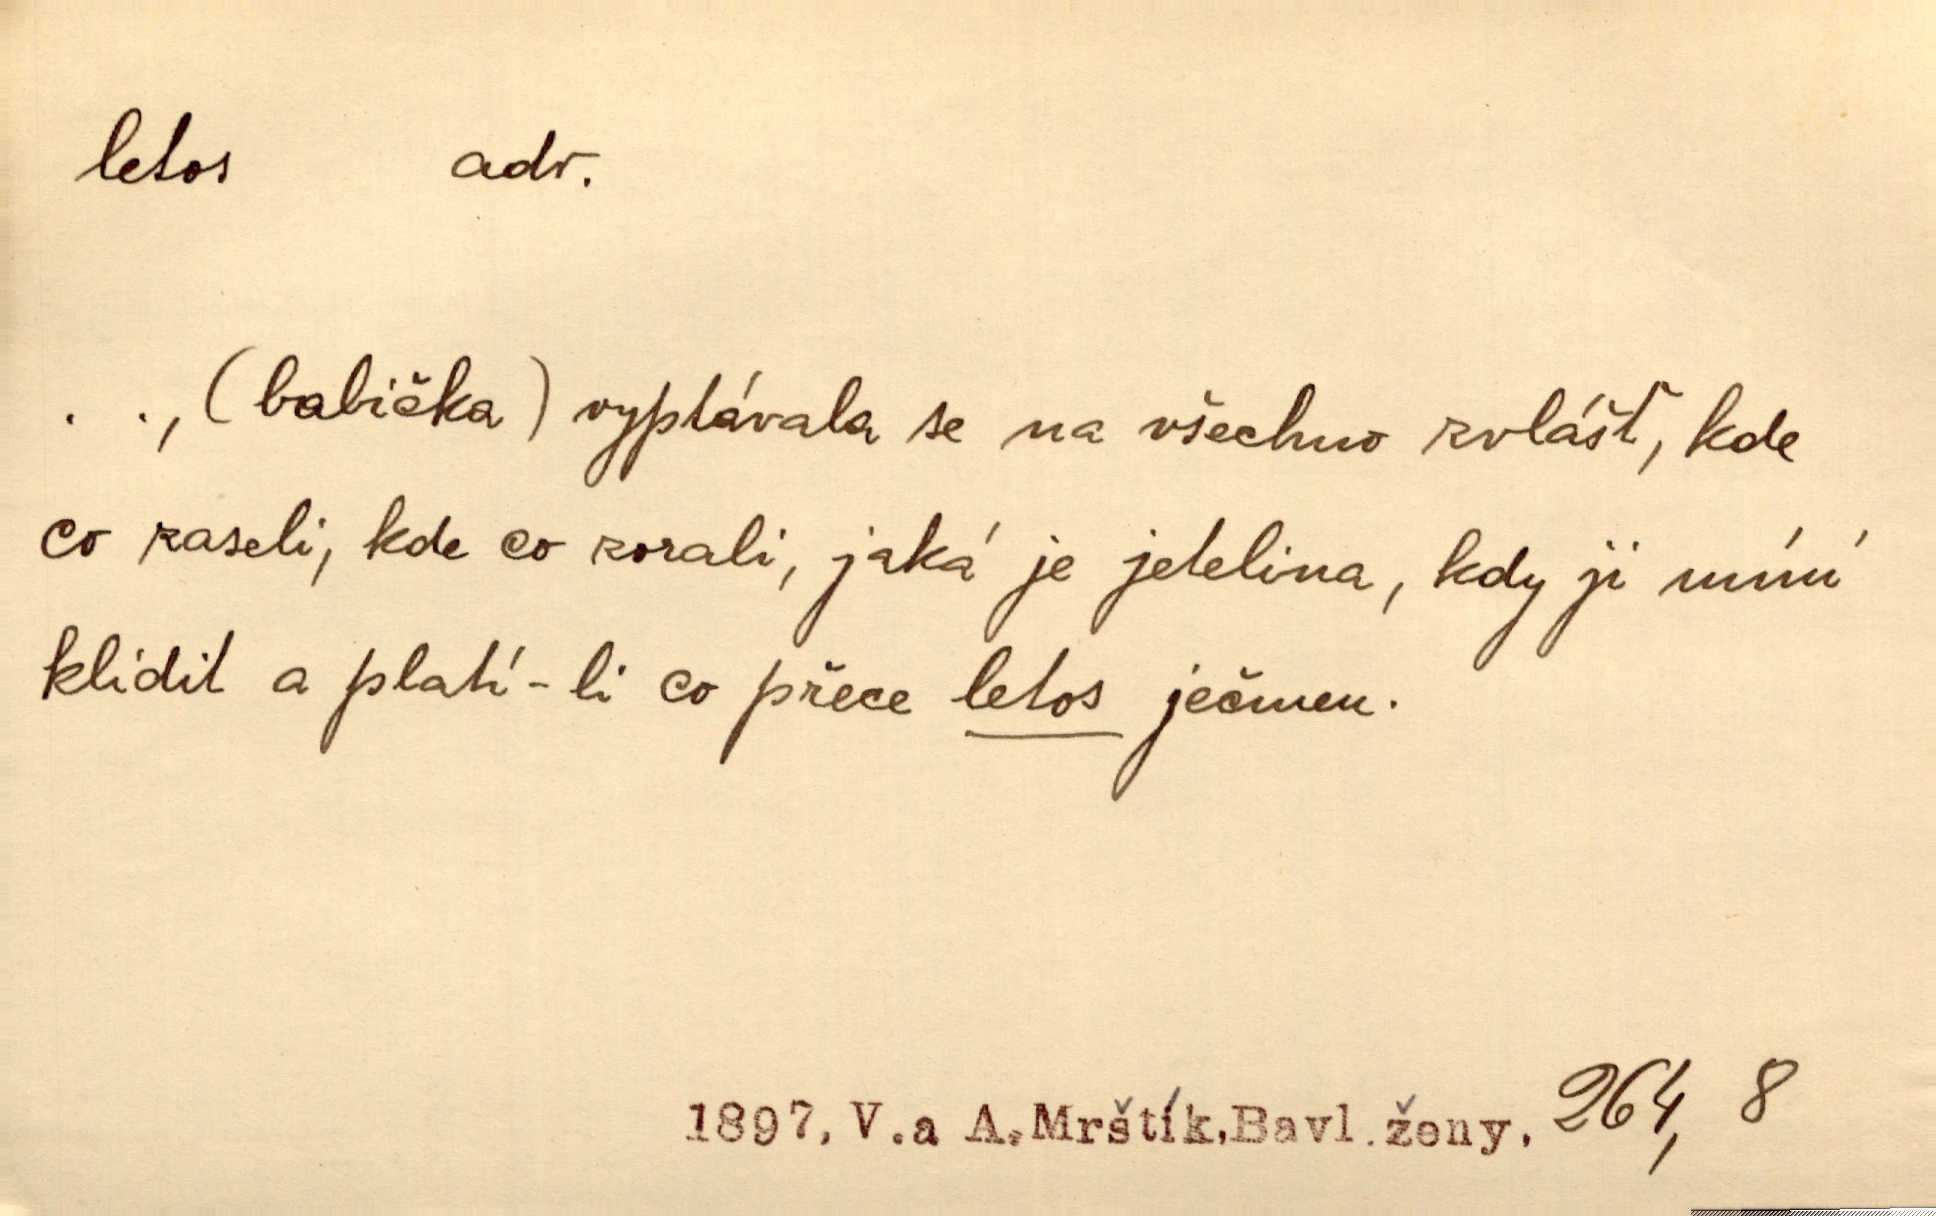 letos adv.
. ., (babička) vyptávala se na všechno zvlášť, kde
co zaseli, kde co zorali, jaká je jetelina, kdy ji míní
klidit a platí-li co přece letos ječmen.
1897, V.a A.Mrštík,Bavl.ženy, 264, 8